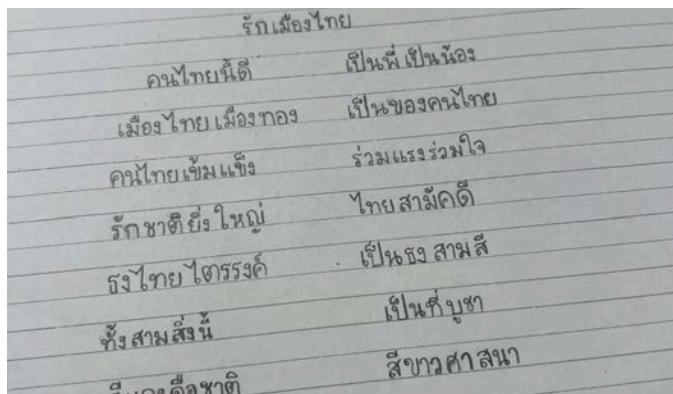 รักเมืองไทย
คนไทยนี้ดี เป็นพี่เป็นน้อง
เมืองไทยเมืองทอง เป็นของคนไทย
คนไทยเข้มแข็ง ร่วมแรงร่วมใจ
รักชาติยิ่งใหญ่ ไทยสามัคคี
ธงไทยไตรรงค์ เป็นธงสามสี
ทั้งสามสิ่งนี้ เป็นที่บูชา
สีแดงคือชาติ สีขาวศาสนา